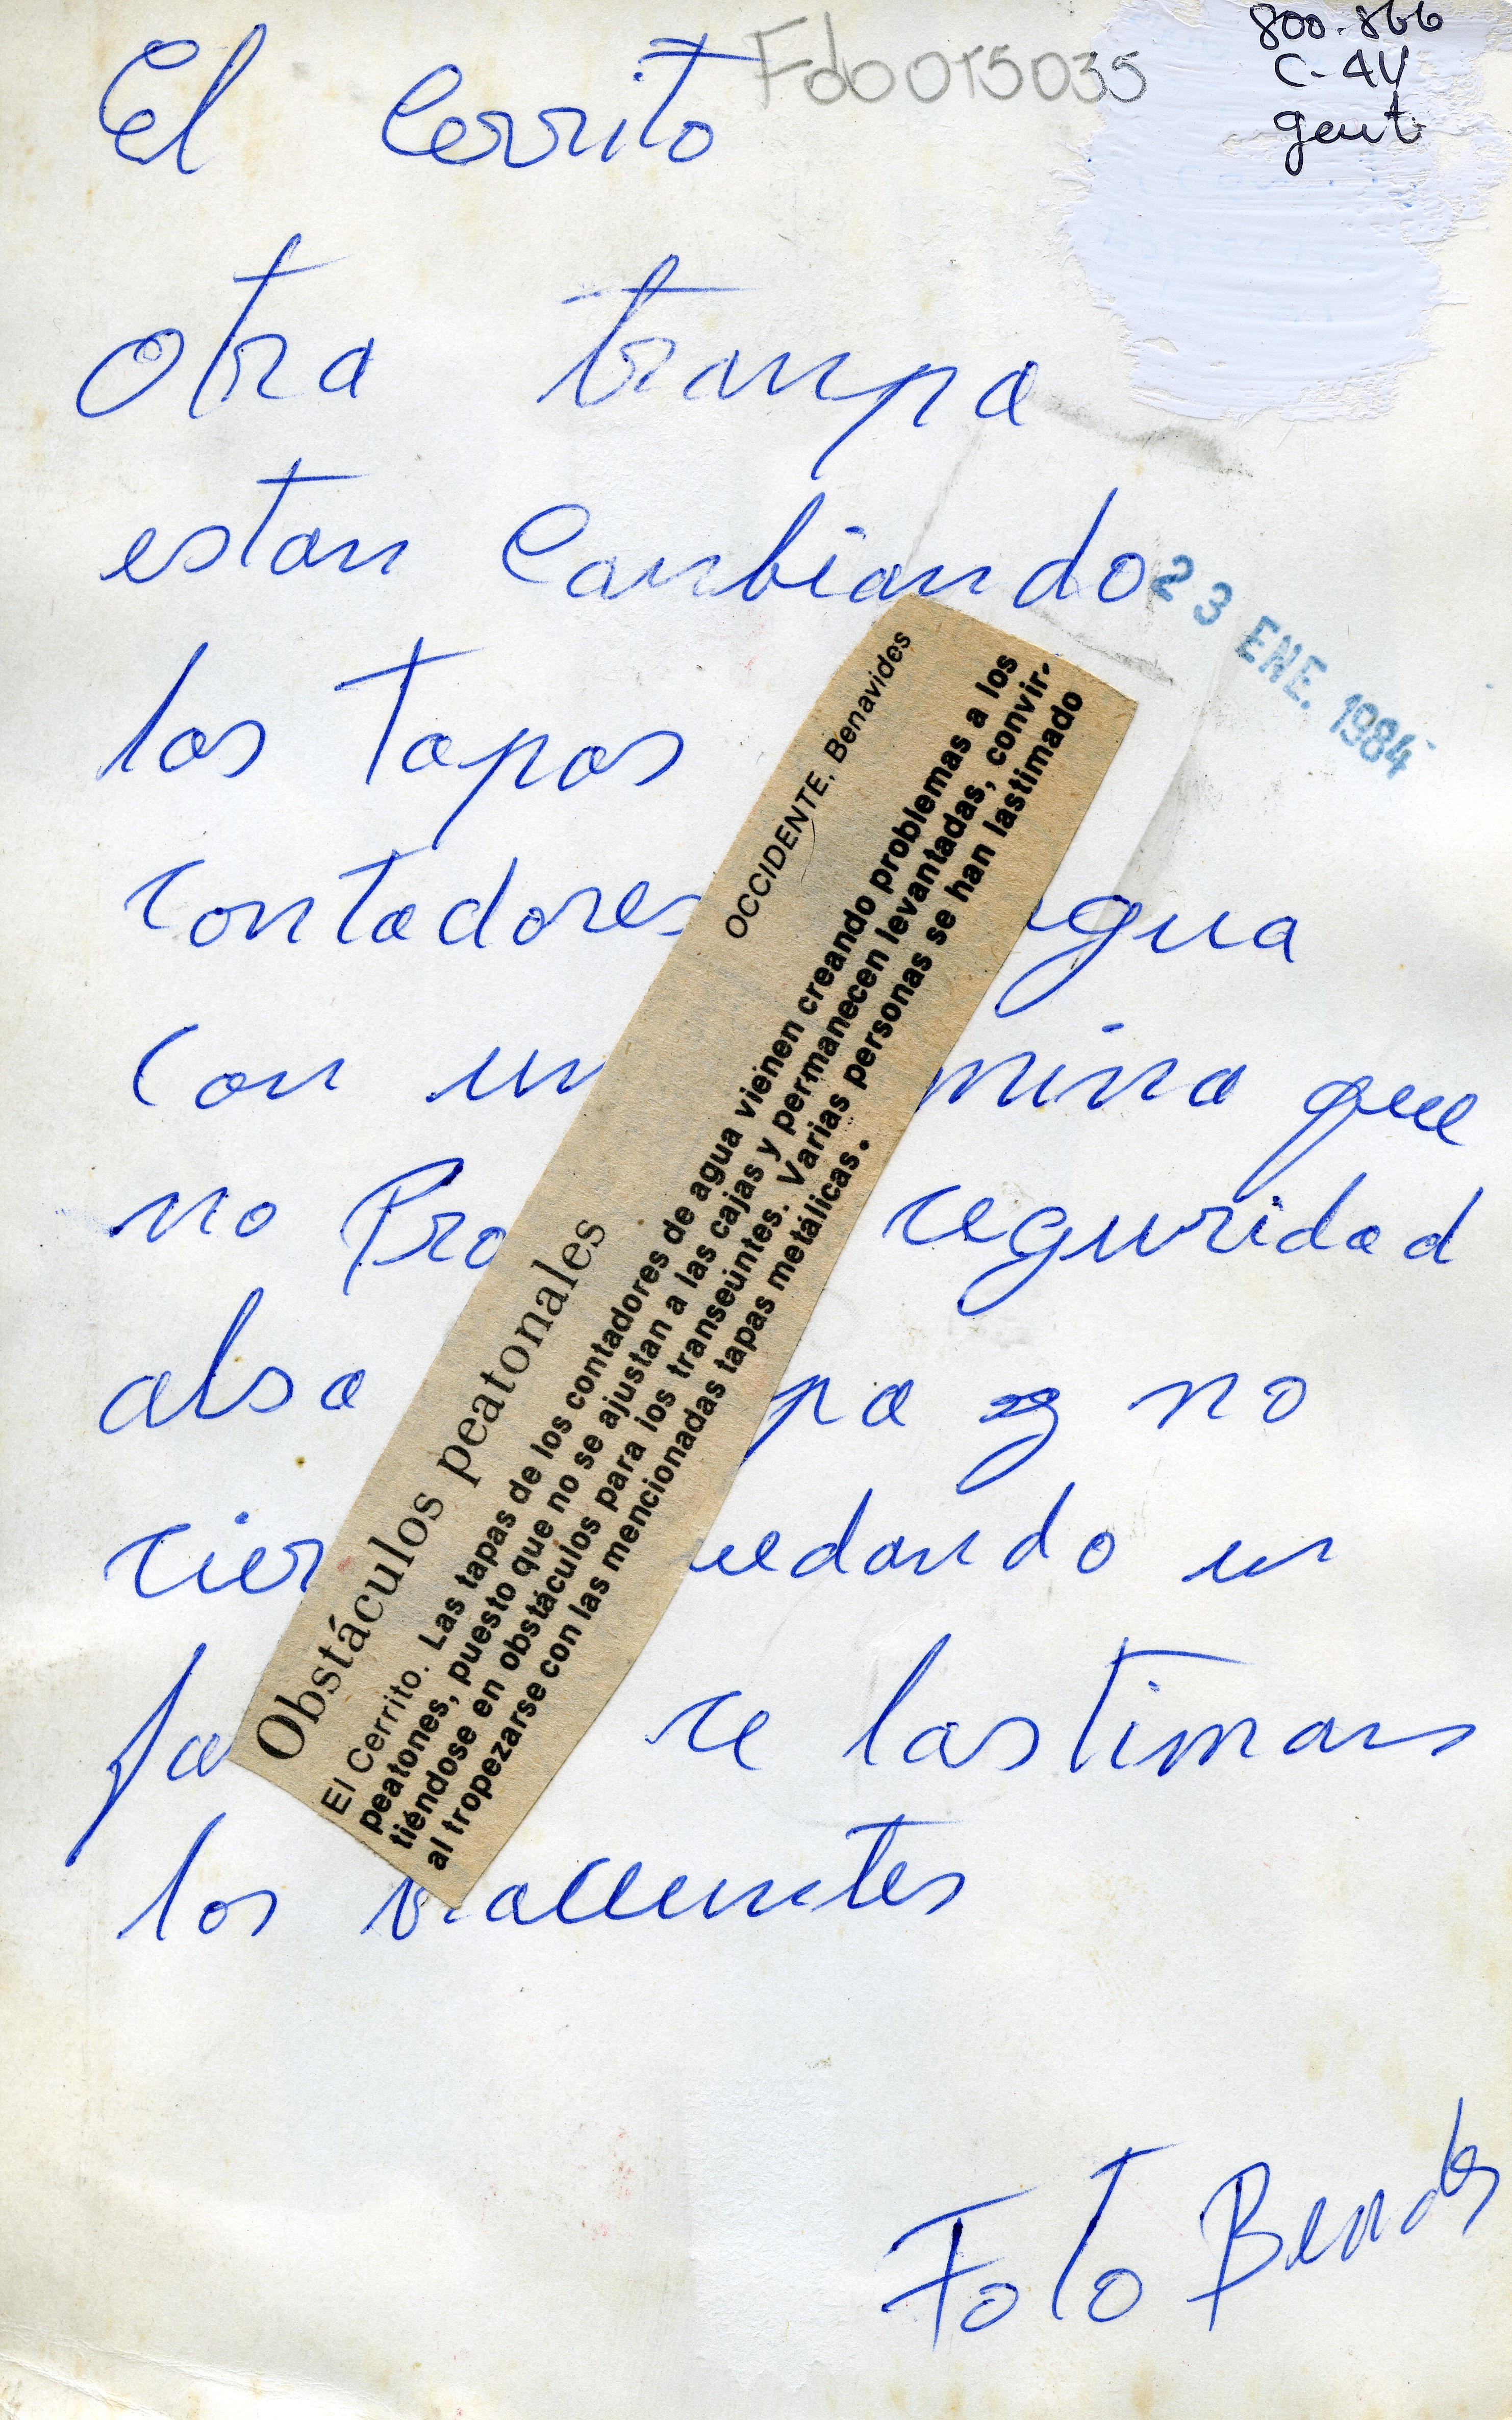 El Cerrito
Fdo015035
800.866
C-44
gent.
otra trampa
estan Cambiando
23 ENE. 1984
las Tapas
contadores agua
Con un mina que
no Pro seguridad
alsa pa y no
cier uedando en
fa se lastiman
los
Foto
OCCIDENTE, Benavides
Obstáculos peatonales
El Cerrito. Las tapas de los contadores de agua vienen creando problemas a los
peatones, puesto que no se ajustan a las cajas y permanecen levantadas, convir-
tiéndose en obstáculos para los transeúntes. Varias personas se han lastimado
al tropezarse con las mencionadas tapas metálicas.